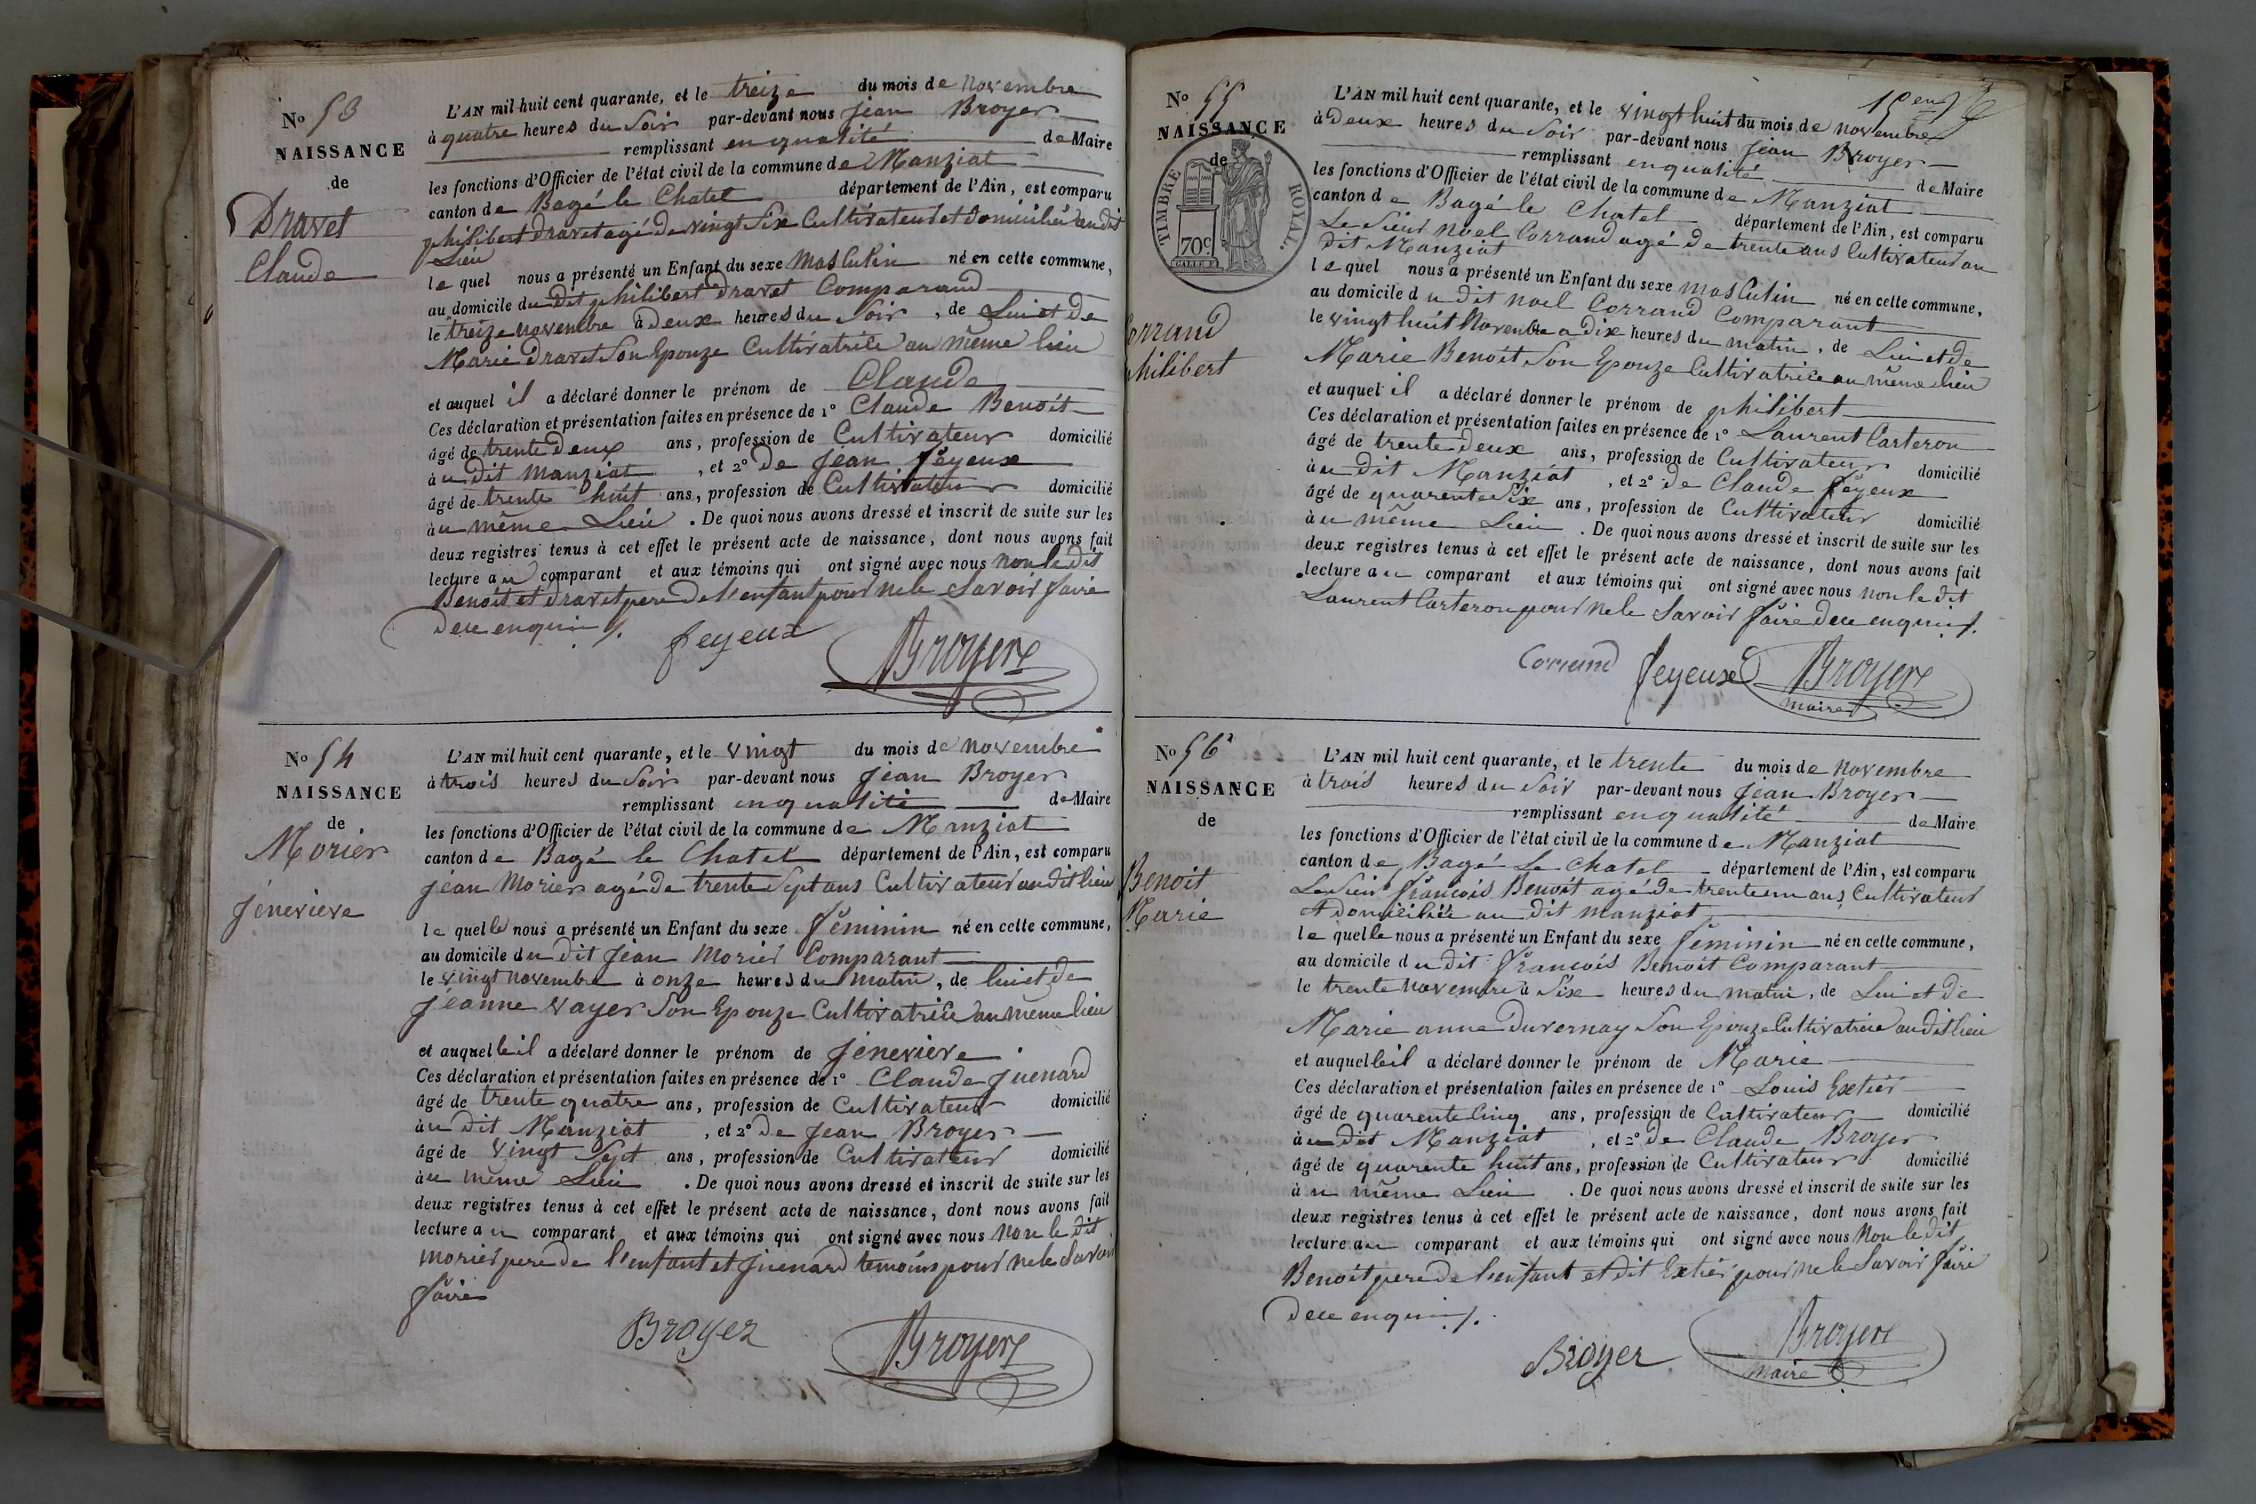 No 53
NAISSANCE
de
Dravet
Claude
L'AN mil huit cent quarante, et le treize du mois de novembre
à quatre heures du Soir par-devant nous jean Broyer
remplissant en qualité de Maire
les fonctions d'Officier de l'état civil de la commune de Manziat
canton de Bagé le Chatel département de l'Ain, est comparu
philibert dravet agé de vingt Six Cultivateur et Domicilié au dit
Lieu
le quel nous a présenté un Enfant du sexe masculin né en cette commune,
au domicile du Dit philibert Dravet Comparand
le treize novembre à Deux heures du Soir, de Lui et De
Marie Dravet Son Epouze Cultivatrice au même lieu
et auquel il a déclaré donner le prénom de Claude
Ces déclaration et présentation faites en présence de 1° Claude Benoît
âgé de trente deux ans, profession de Cultivateur domicilié
à u dit manziat, et 2° de Jean feyeux
âgé de trente huit ans, profession de Cultivateur domicilié
à u même Lieu. De quoi nous avons dressé et inscrit de suite sur les
deux registres tenus à cet effet le présent acte de naissance, dont nous avons fait
lecture au comparant et aux témoins qui ont signé avec nous non le dit
Benoît et dravet pere De l'enfant pour ne le Savoir faire
de ce enquis ./.
feyeux Broyer
No 54
NAISSANCE
de
Morier
jenevieve
L'AN mil huit cent quarante, et le vingt du mois de novembre
à trois heures du Soir par-devant nous jean Broyer
remplissant en qualité de Maire
les fonctions d'Officier de l'état civil de la commune de Manziat
canton de Bagé le Chatel département de l'Ain, est comparu
jean Morier agé de trente Sept ans Cultivateur au dit lieu
le quelle nous a présenté un Enfant du sexe féminin né en cette commune,
au domicile du dit jean morier Comparant
le vingt novembre à onze heures du matin, de lui et de
jeanne vayer Son Epouze Cultivatrice au même lieu
et auquelle il a déclaré donner le prénom de jenevieve
Ces déclaration et présentation faites en présence de 1° Claude juenard
âgé de trente quatre ans, profession de Cultivateur domicilié
à u dit Manziat, et 2° de jean Broyer
âgé de vingt Sept ans, profession de Cultivateur domicilié
à u même Lieu. De quoi nous avons dressé et inscrit de suite sur les
deux registres tenus à cet effet le présent acte de naissance, dont nous avons fait
lecture au comparant et aux témoins qui ont signé avec nous non le dit
morier pere de l'enfant et juenard temoins pour ne le Savoir
faire
Broyer Broyer
No 55
NAISSANCE
de
TIMBRE ROYAL.
70c
orrand
hilibert
L'AN mil huit cent quarante, et le vingt huit du mois de novembre
à Deux heures du Soir par-devant nous jean Broyer
remplissant en qualité de Maire
les fonctions d'Officier de l'état civil de la commune de Manziat
canton de Bagé le Chatel département de l'Ain, est comparu
Le Sieur Noel Corrand agé de trente ans Cultivateur au
dit Manziat
le quel nous a présenté un Enfant du sexe masculin né en cette commune,
au domicile du dit noel Corrand Comparant
le vingt huit Novembre a Dix heures du matin, de Lui et de
Marie Benoît Son Epouze Cultivatrice au même lieu
et auquel il a déclaré donner le prénom de philibert
Ces déclaration et présentation faites en présence de 1° Laurent Carteron
âgé de trente deux ans, profession de Cultivateur domicilié
à u dit Manziat, et 2° de Claude feyeux
âgé de quarente Six ans, profession de Cultivateur domicilié
à u même Lieu. De quoi nous avons dressé et inscrit de suite sur les
deux registres tenus à cet effet le présent acte de naissance, dont nous avons fait
lecture au comparant et aux témoins qui ont signé avec nous non le dit
Laurent Carteron pour ne le Savoir faire de ce enquis ./.
Corrand feyeux Broyer
maire
No 56
NAISSANCE
de
Benoit
Marie
L'AN mil huit cent quarante, et le trente du mois de novembre
à trois heures du Soir par-devant nous jean Broyer
remplissant en qualité de Maire
les fonctions d'Officier de l'état civil de la commune de Manziat
canton de Bagé Le Chatel département de l'Ain, est comparu
Le Sieur françois Benoît agé de trente un ans Cultivateur
et domicilié au dit manziat
le quelle nous a présenté un Enfant du sexe féminin né en cette commune,
au domicile du dit françois Benoit Comparant
le trente novembre à Six heures du matin, de Lui et de
Marie anne Duvernay Son Epouze Cultivatrice au dit lieu
et auquelle il a déclaré donner le prénom de Marie
Ces déclaration et présentation faites en présence de 1° Louis Extier
âgé de quarente Cinq ans, profession de Cultivateur domicilié
à u dit Manziat, et 2° de Claude Broyer
âgé de quarente huit ans, profession de Cultivateur domicilié
à u même Lieu. De quoi nous avons dressé et inscrit de suite sur les
deux registres tenus à cet effet le présent acte de naissance, dont nous avons fait
lecture au comparant et aux témoins qui ont signé avec nous Non le dit
Benoît pere de l'enfant et dit Extier pour ne le Savoir faire
de ce enquis ./.
Broyer Broyer
maire